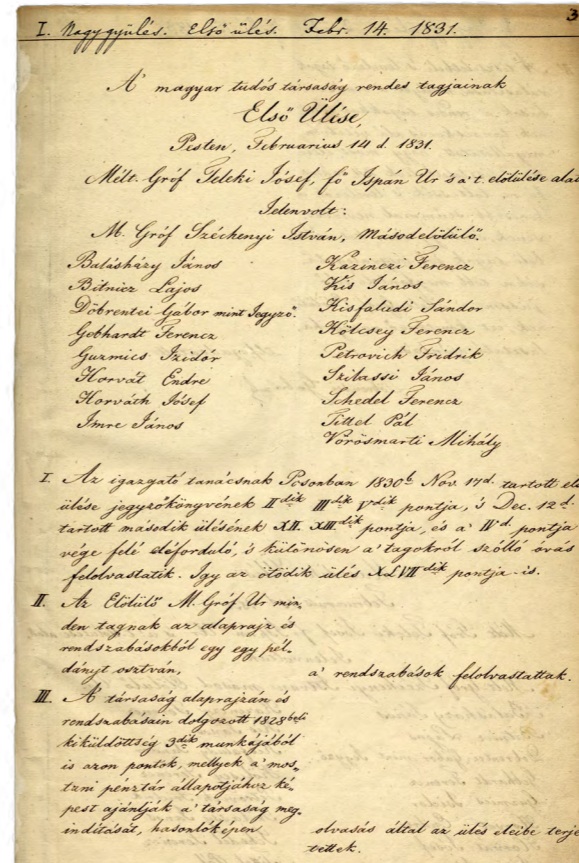 3
I. Nagygyülés. Első ülés. Febr. 14. 1831.
A' magyar tudós társaság rendes tagjainak
Első Ülése,
Pesten, Februarius 14 d. 1831.
Mélt. Gróf Teleki Jósef, fő Ispán Úr s a' t. előlülése alat
Jelenvolt:
M. Gróf Széchenyi István, Másodelőlülő.
Balásházy János
Bitnicz Lajos
Döbrentei Gábor mint Jegyző.
Gebhardt Ferencz
Guzmics Izidór
Horvát Endre
Horváth Jósef
Imre János
Kazinczi Ferencz
Kis János
Kisfaludi Sándor
Kölcsey Ferencz
Petrovich Fridrik
Szilassi János
Schedel Ferencz
Tittel Pál
Vörösmarti Mihály
I. Az igazgató tanácsnak Posonban 1830b Nov. 17d. tartott els
ülése jegyzőkönyvének IIdik IIIdik Vdik pontja, 's Dec. 12d.
tartott második ülésének XII. XIIIdik pontja, és a' IVd. pontja
vége felé előforduló, 's különösen a' tagokról szólló óvás
felolvastatik. Igy az ötödik ülés XLVIIdik pontja is.
II. Az Előlülő M. Gróf Úr min,
den tagnak az alaprajz és
rendszabásokból egy egy pél,
dányt osztván,
a' rendszabások felolvastattak.
III. A' társaság alaprajzán és
rendszabásain dolgozott 1828beli
kiküldöttség 3dik munkájából
is azon pontok, mellyek a' mos,
tani pénztár állapotjához ké,
pest ajánlják a' társaság meg,
indítását, hasonlóképen
olvasás által az ülés eleibe terje
tettek.